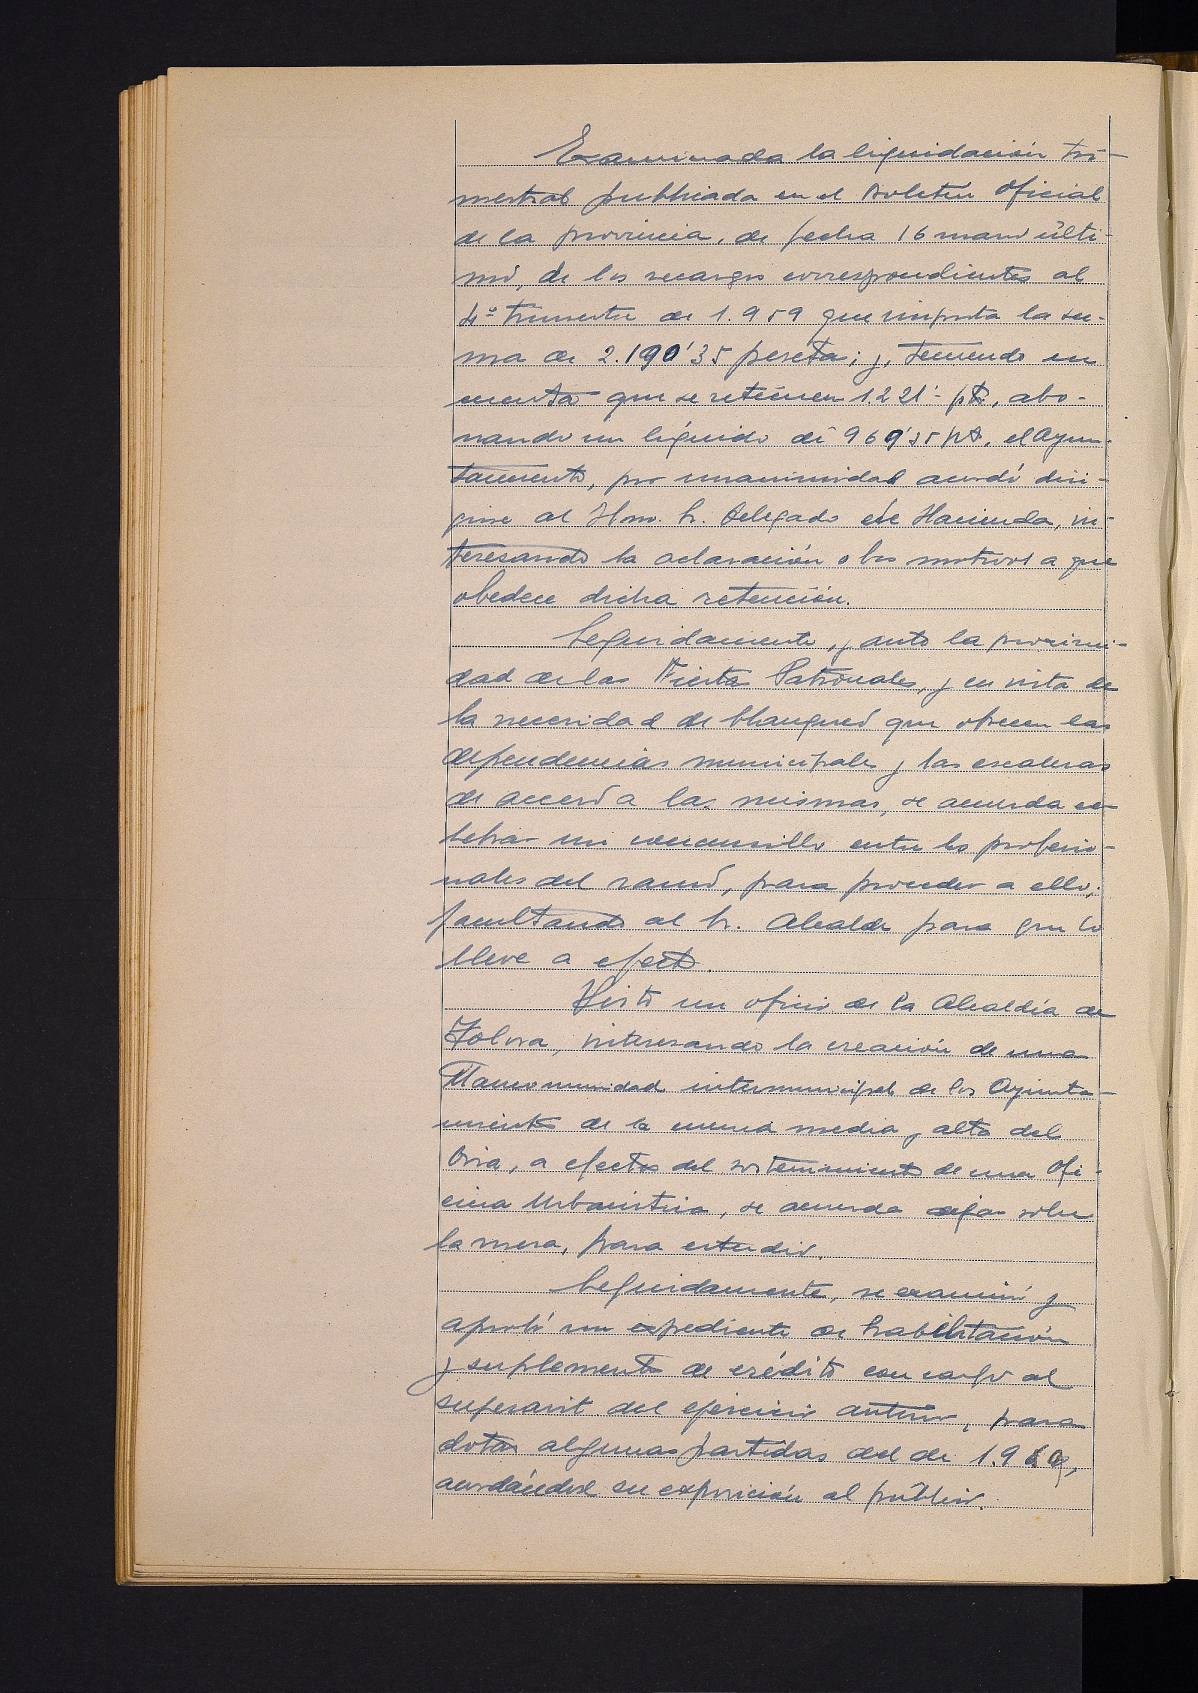 Examinada la liquidación tri-
mestral publicada en el Boletín Oficial
de la provincia, de fecha 16 marzo últi-
mo, de los recargos correspondientes al
4º trimestre de 1.959 que importa la su-
ma de 2.190'35 pesetas; y, teniendo en
cuenta que se retienen 1.221'- pts, abo-
nando un líquido de 969'35 pts. el Ayun-
tamiento, por unanimidad acordó diri-
girse al Iltmo. Sr. Delegado de Hacienda, in-
teresando la aclaración o los motivos a que
obedece dicha retención.
Seguidamente, y ante la proximi-
dad de las Fiestas Patronales, y en vista de
la necesidad de blanqueo que ofrecen las
dependencias municipales y las escaleras
de acceso a las mismas, se acuerda ce-
lebrar un concursillo entre los profesio-
nales del ramo, para proceder a ello,
facultando al Sr. Alcalde para que lo
lleve a efecto.
Visto un oficio de la Alcaldía de
Tolosa, interesando la creación de una
Mancomunidad intermunicipal de los Ayunta-
mientos de la cuenca media y alta del
Oria, a efectos del sostenimiento de una Ofi-
cina Urbanística, se acuerda dejar sobre
la mesa, para estudio.
Seguidamente, se examinó y
aprobó un expediente de habilitación
y suplemento de crédito con cargo al
superavit del ejercicio anterior, para
dotar algunas partidas del de 1.960,
acordándose su exposición al público.